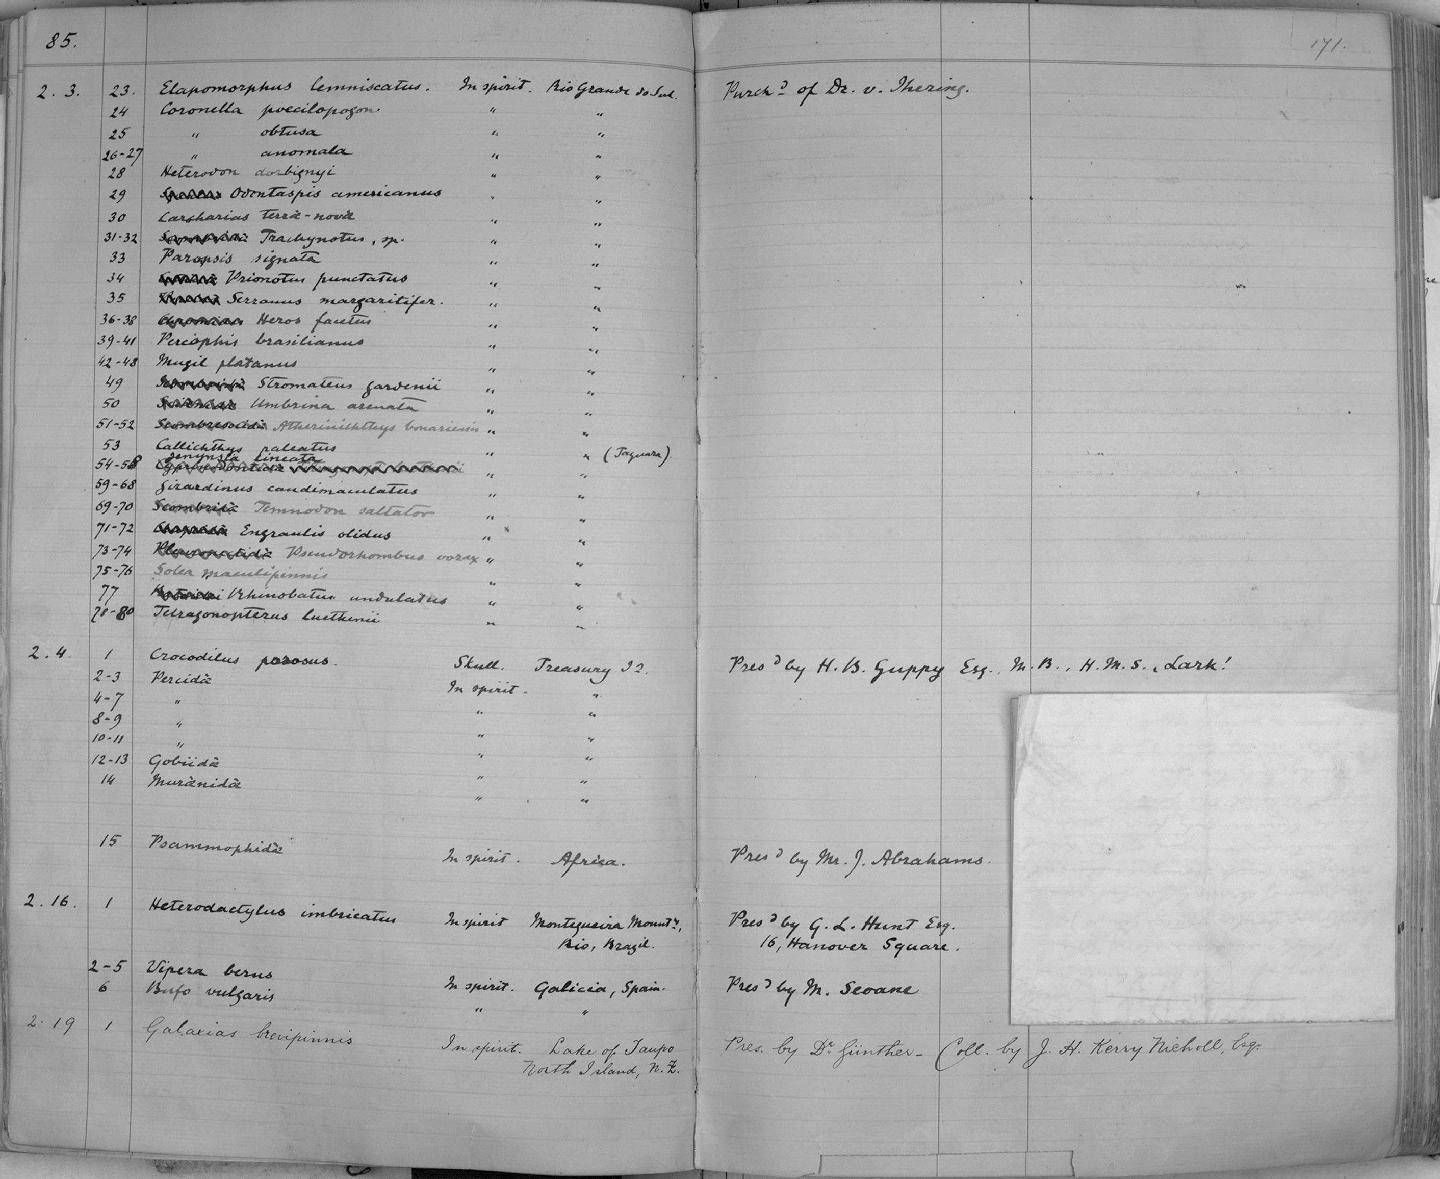 85.
171.
2. 3. 23. Elapomorphus lemniscatus. In spirit. Rio Grande do Sul. Purchd of Dr. v. Ihering.
24 Coronella poecilopogon " "
25 " obtusa " "
26-27 " anomala " "
28 Heterodon dorbignyi " "
29 Odontaspis americanus " "
30 Carcharias terrä-novä " "
31-32 Trachynotus, sp. " "
33 Paropsis signata " "
34 Prionotus punctatus " "
35 Serranus margaritifer. " "
36-38 Chromides Heros facetus " "
39-41 Percophis brasilianus " "
42-48 Mugil platanus " "
49 Stromateus gardenii " "
50 Umbrina arenata " "
51-52 Scombresocidä Atherinichthys bonariensis " "
53 Callichthys paleatus " " (Taquara).
Jenynsia lineata
54-58 Cyprinodontidae " "
59-68 Girardinus caudimaculatus " "
69-70 Scombridä Temnodon saltator " "
71-72 Engraulis olidus " "
73-74 Pleuronectidä Pseudorhombus vorax " "
75-76 Solea maculipinnis " "
77 Rhinobatus undulatus " "
78-80 Tetragonopterus luetkenii " "
2. 4. 1 Crocodilus porosus. Skull. Treasury Id. Presd by H. B. Guppy Esq., M. B., H. M. S. "Lark"!
2-3 Percidä In spirit. "
4-7 " " "
8-9 " " "
10-11 " " "
12-13 Gobiidä " "
14 Muränidä " "
15 Psammophidä In spirit. Africa. Presd by Mr. J. Abrahams.
2. 16. 1 Heterodactylus imbricatus In spirit Montequeira Mounts, Presd by G. L. Hunt Esq.
Rio, Brazil. 16, Hanover Square.
2-5 Vipera berus In spirit. Galicia, Spain. Presd by M. Seoane
6 Bufo vulgaris " "
2. 19 1 Galaxias brevipinnis In spirit. Lake of Taupo Pres. by Dr Günther - Coll. by J. H. Kerry Nicholl, Esq.
North Island, N. Z.